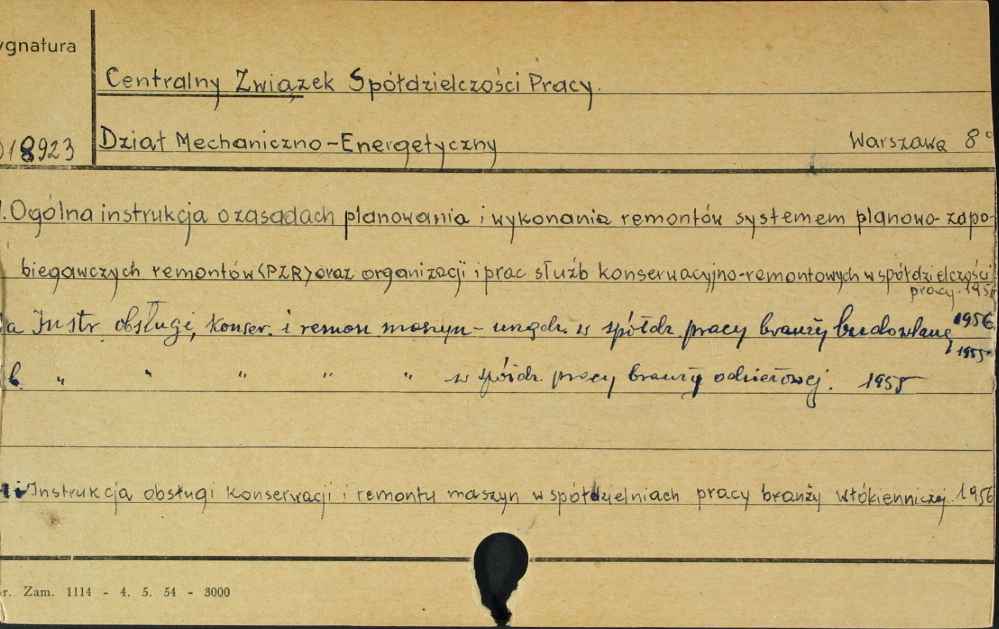 ygnatura
Centralny Związek Spółdzielczości Pracy.
18923 Dział Mechaniczno-Energetyczny Warszawa 8°
1. Ogólna instrukcja o zasadach planowania i wykonania remontów systemem planowo-zapo-
biegawczych remontów (PZR) oraz organizacji i prac służb konserwacyjno-remontowych w spółdzielczości
pracy. 195
a Instr. obsługi, konser. i remon maszyn - urządz. w spółdz. pracy branży budowlanej 1956
1955
b. " " " " " w spółdz. pracy branży odzieżowej. 1955
Instrukcja obsługi konserwacji i remontu maszyn w spółdzielniach pracy branży włókienniczej. 1956
r. Zam. 1114 - 4. 5. 54 - 3000